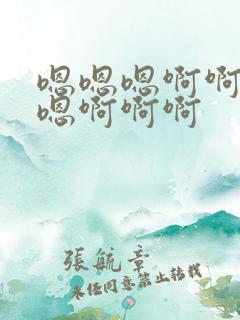 嗯嗯嗯啊啊
嗯啊啊啊
張航章
未经同意禁止转载